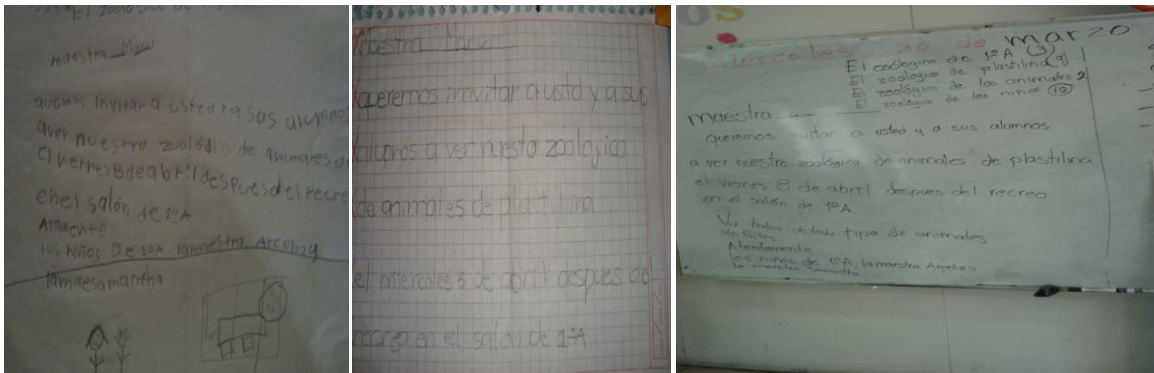 El zoológico de
maestra Maru
queremos invitar a usted y a sus alumnos
aver nuestro zoológico de animales
el viernes 8 de abril despues del recre
en el salón de 1ºA
Atmente
los niños de 1ºA lamaestra Araceli y
lamaesamantha
Maestra Maru
queremos imvitar a usto y a sus
alunos a ver nuesto zoologico
de animales de plastilina
el miercoles 6 de abril despues de
en el salón de 1ºA
miercoles 30 de marzo
El zoologico de 1ºA (3)
El zoologico de plastilina (9)
El zoológico de los animales 2
El zoológico de los niños 10
maestro
queremos invitar a usted y a sus alumnos
a ver nuestro zoológico de animales de plastilina
el viernes 8 de abril despues del recreo
en el salón de 1ºA
tipo de animales
Atentamente
los niños de 1ºA, la maestra Araceli y
la maestra Samantha